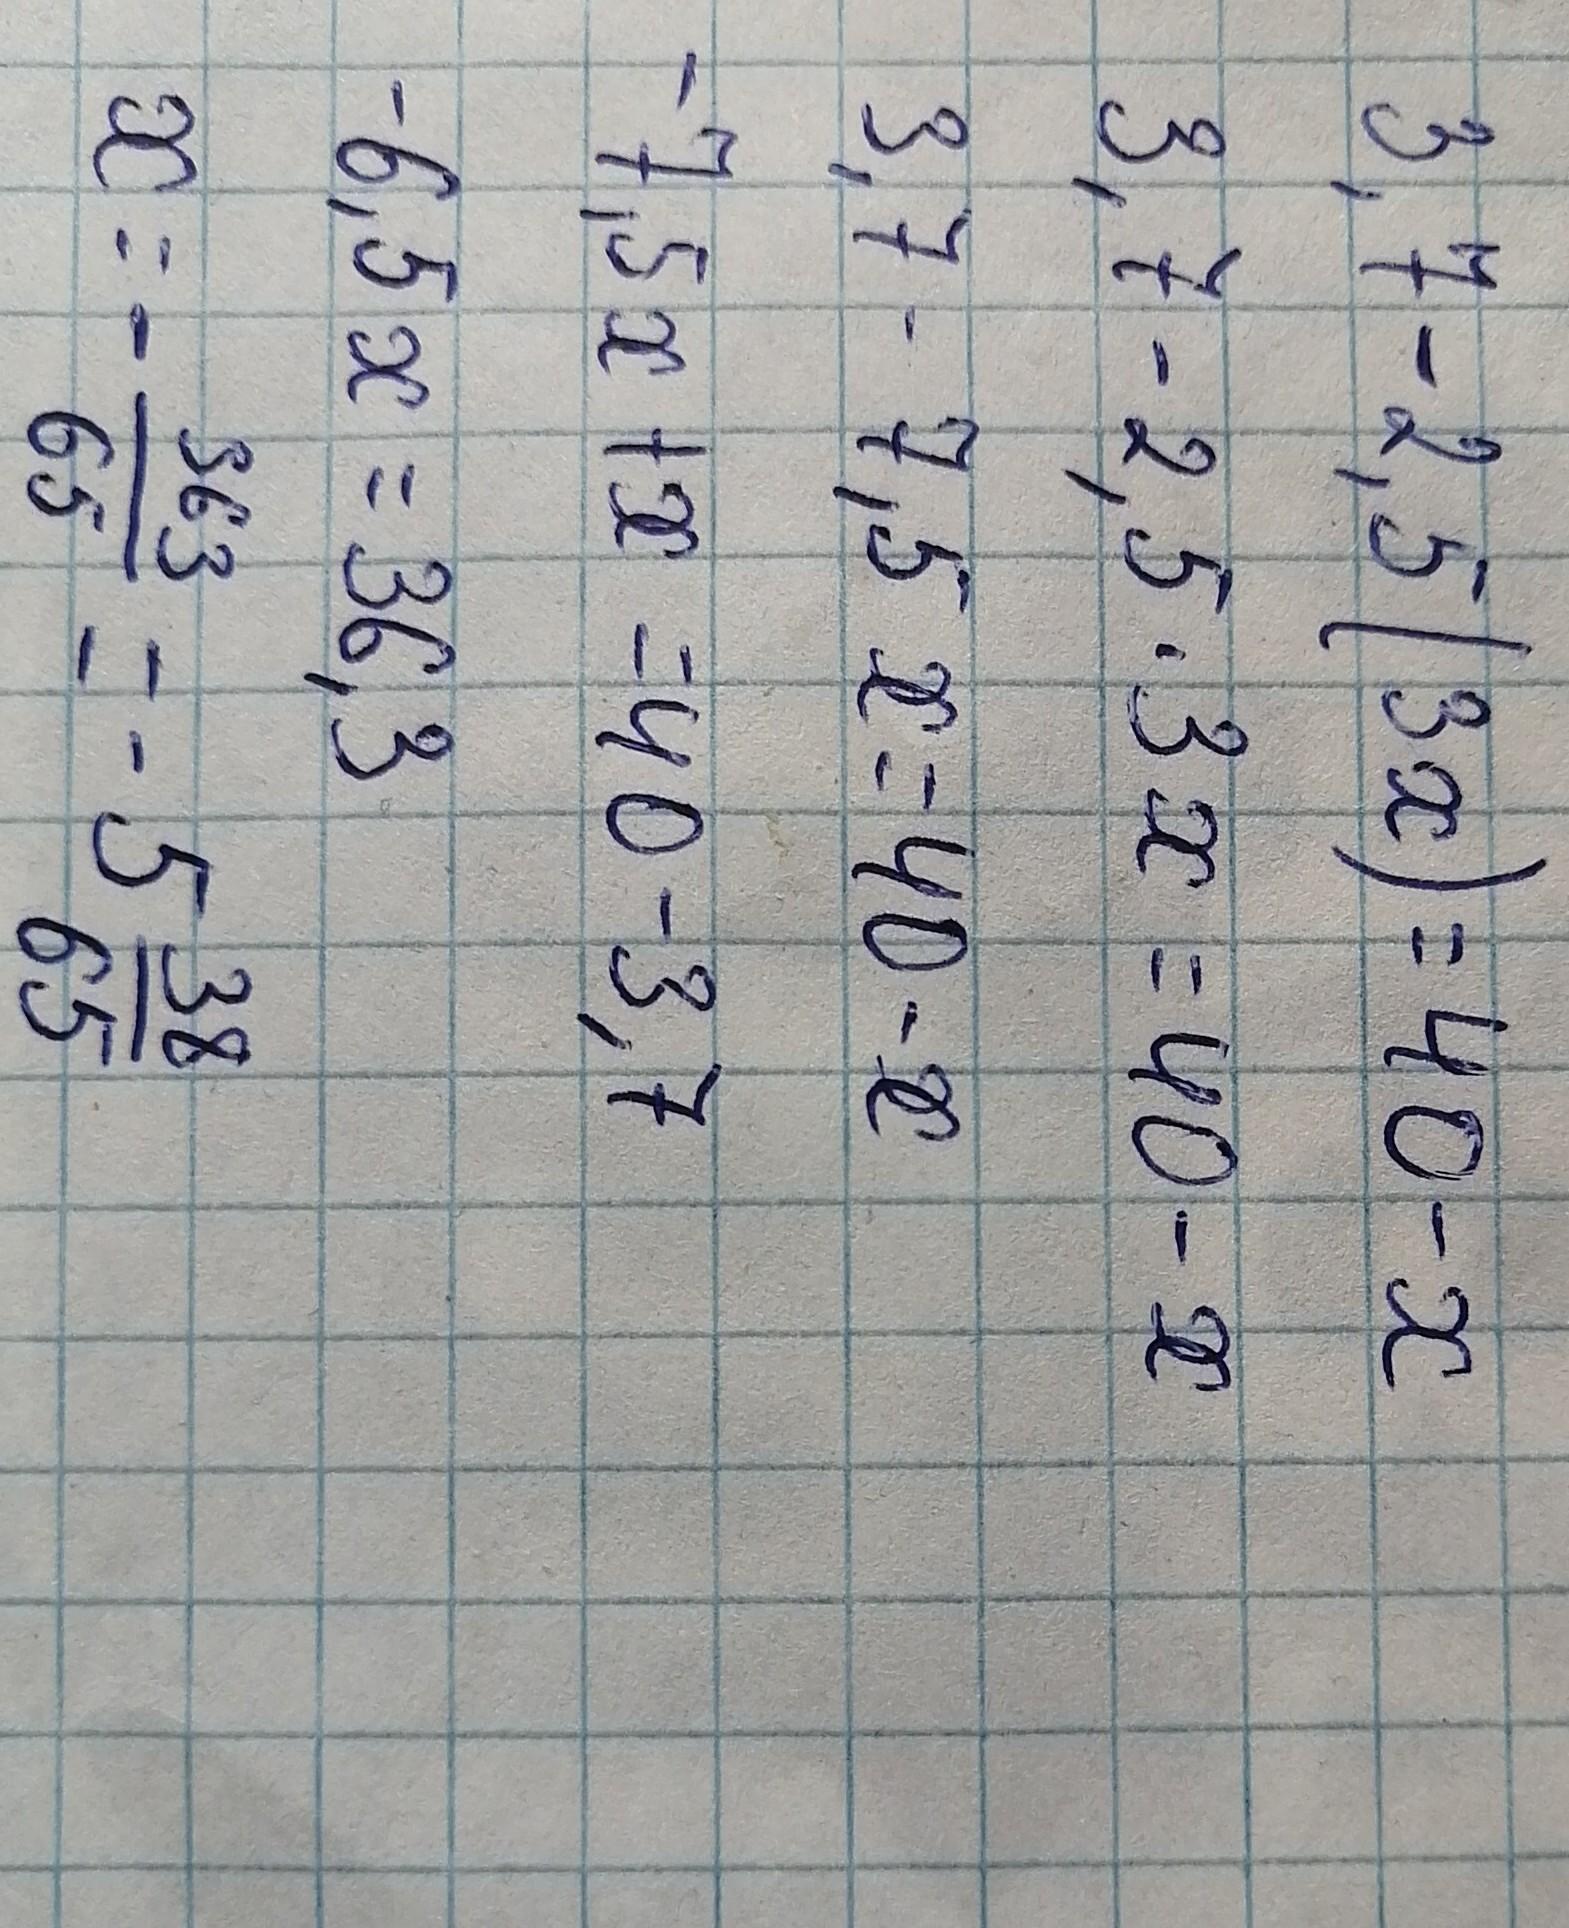 3,7-2,5(3x)=40-x
3,7-2,5·3x=40-x
3,7-7,5x=40-x
-7,5x+x=40-3,7
-6,5x=36,3
x=-363/65=-5 38/65